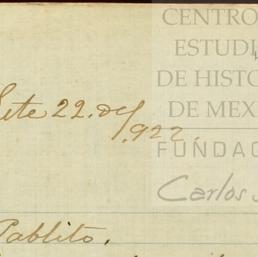 CENTRO
ESTUDI
DE HISTO
DE MEX
FUNDAC
Carlos S
Sete 22. de
1922.
Pablito.